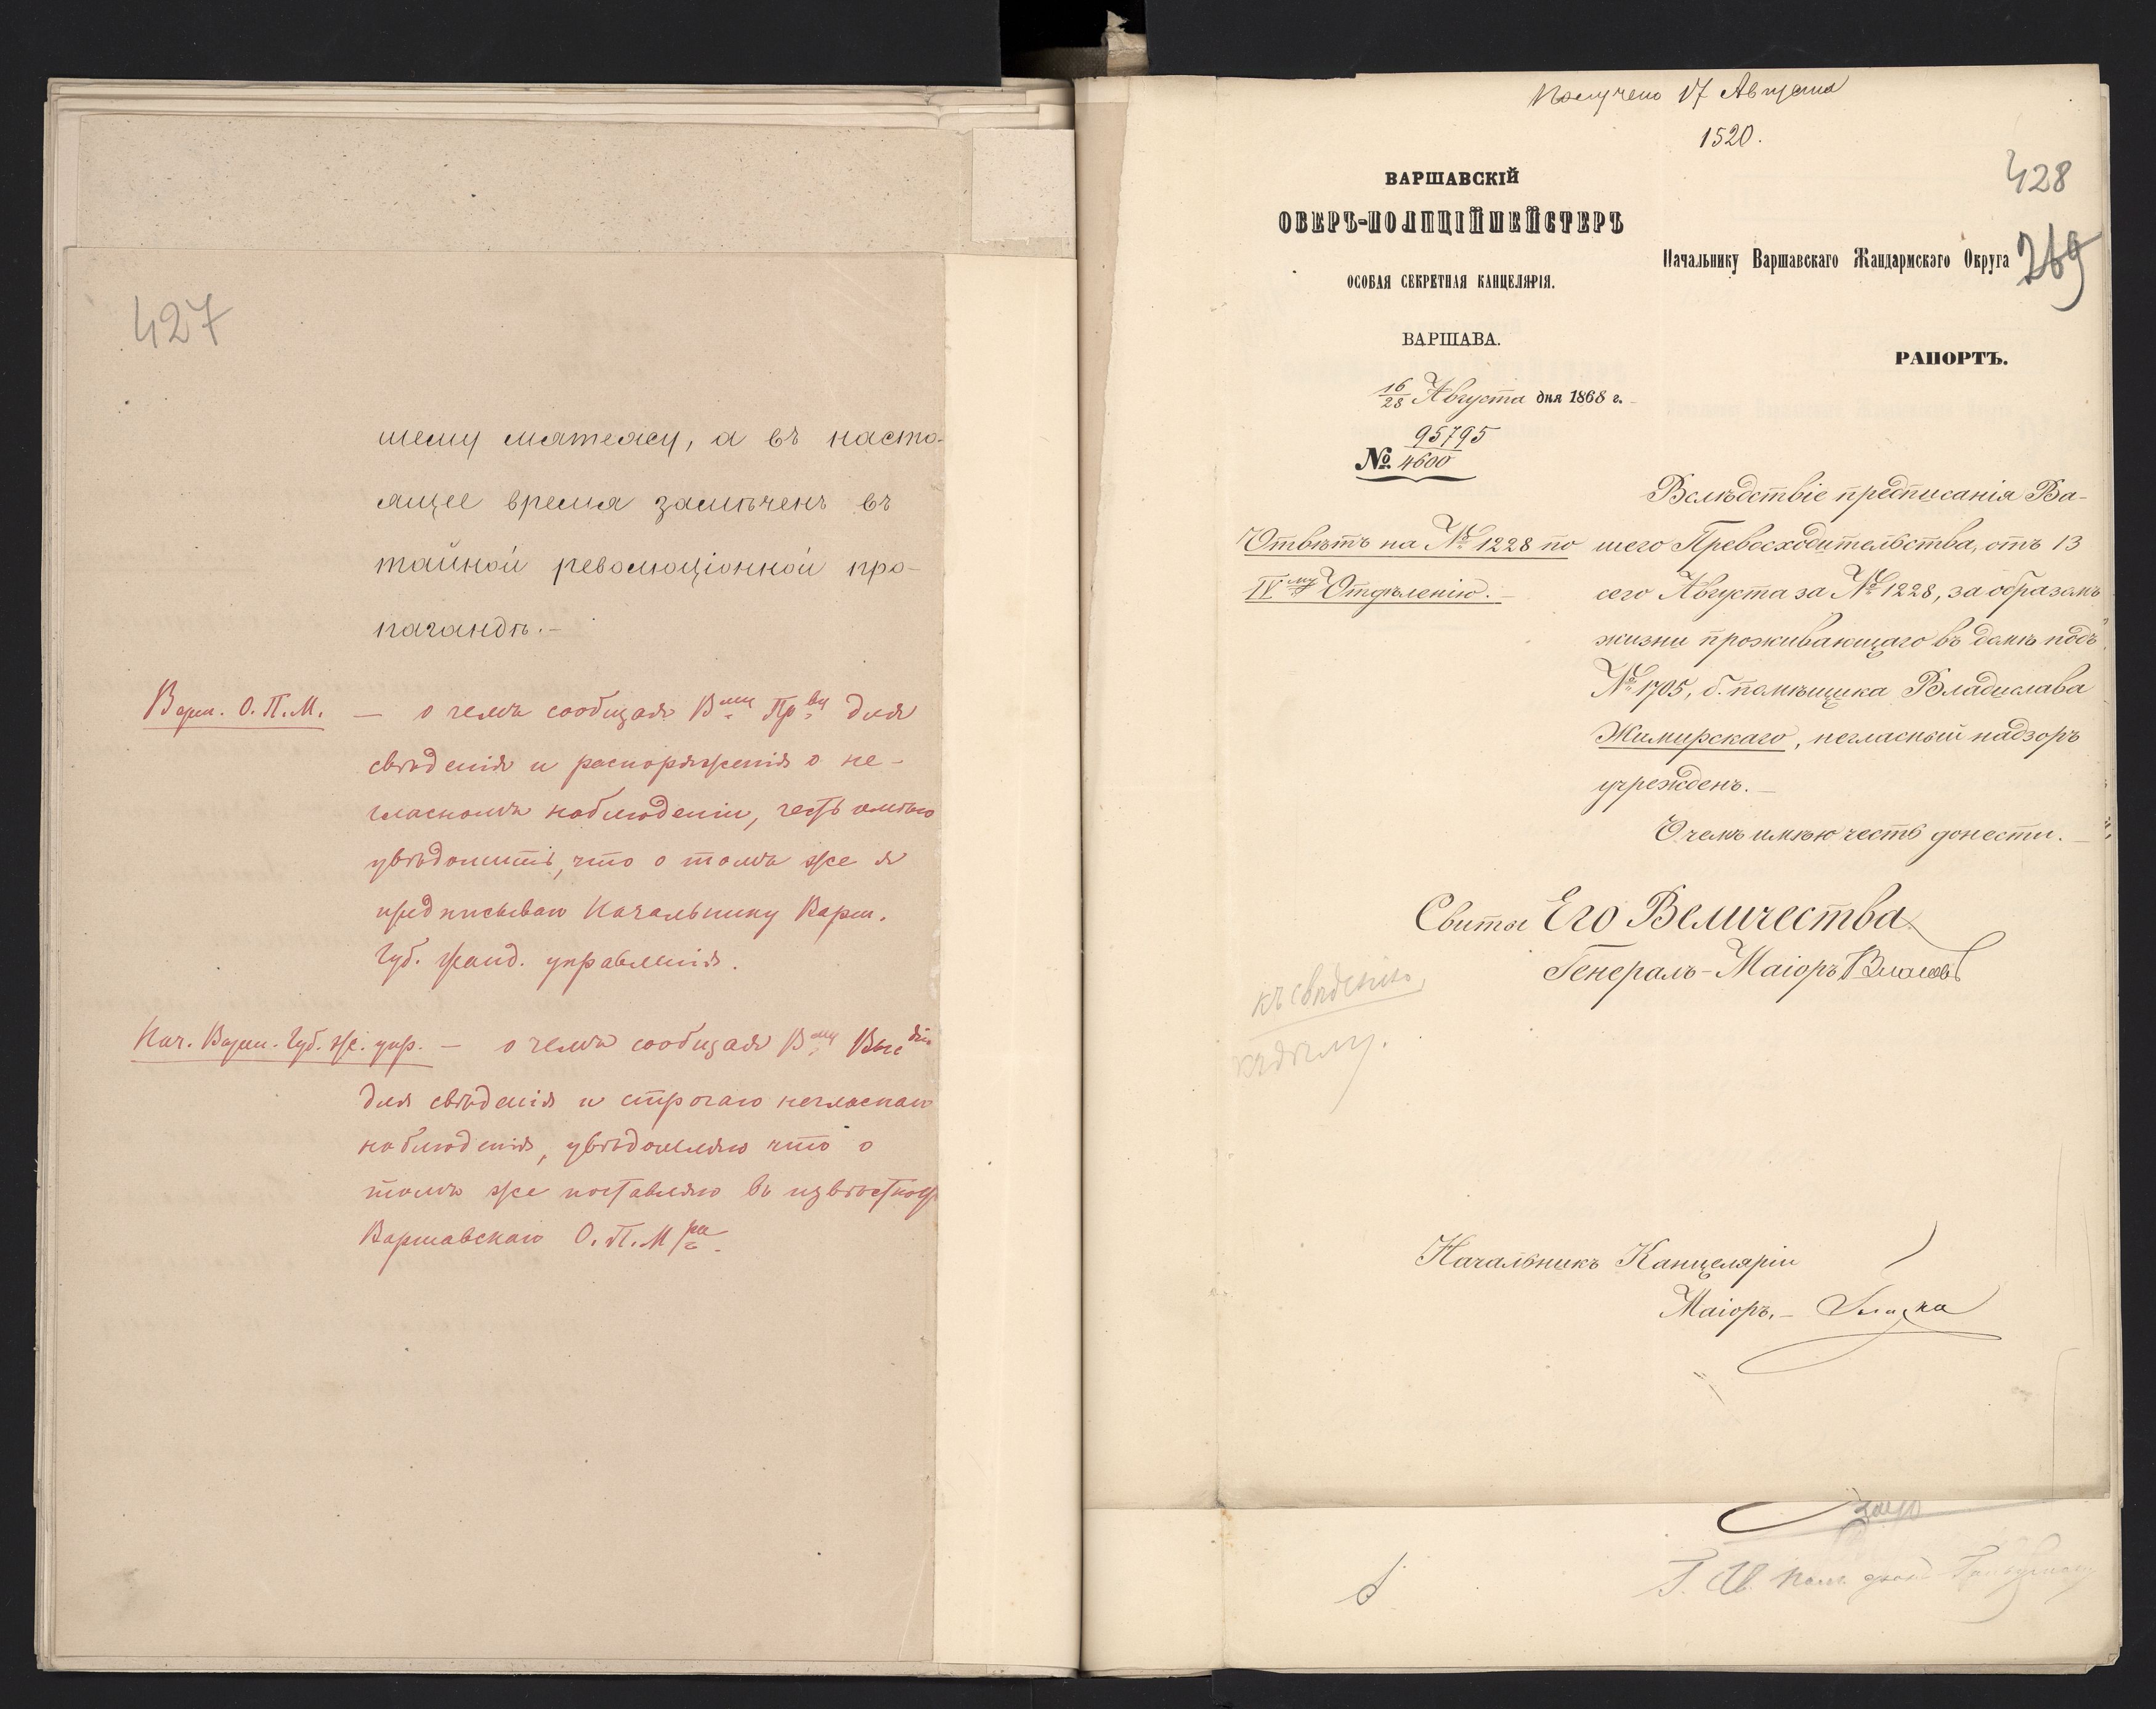 427
шему мятежу, а въ насто-
ящее время замѣченъ въ
тайной революціонной про-
пагандѣ.—
Варш. О. П. М. — о чемъ сообщая Вшу Прву для
свѣденія и распоряженія о не-
гласномъ наблюденіи, честь имѣю
увѣдомить, что о томъ же я
предписываю Начальнику Варш.
Губ. Жанд. управленія.
Нач. Варш. Губ. Ж. упр. — о чемъ сообщая Вму
для свѣденія и строгаго негласнаго
наблюденія, увѣдомляю что о
томъ же поставляю въ извѣстность
Варшавскаго О. П. Мра.
Получено 17 Августа
1520.
428
269
ВАРШАВСКІЙ
ОБЕРЪ-ПОЛИЦІЙМЕЙСТЕРЪ
ОСОБАЯ СЕКРЕТНАЯ КАНЦЕЛЯРІЯ.
ВАРШАВА.
16/28 Августа дня 1868 г.
95795
№ 4600
Отвѣтъ на № 1228 по
IVму Отдѣленію.—
Начальнику Варшавскаго Жандармскаго Округа
РАПОРТЪ.
Вслѣдствіе предписанія Ва-
шего Превосходительства, отъ 13
сего Августа за № 1228, за образомъ
жизни проживающаго въ домѣ подъ
№ 1705, б. помѣщика Владислава
Жимирскаго, негласный надзоръ
учрежденъ.—
О чемъ имѣю честь донести.—
Свиты Его Величества
Генералъ-Маіоръ Власовъ
къ свѣденію,
къ дѣлу.
Начальникъ Канцеляріи
Маіоръ.—